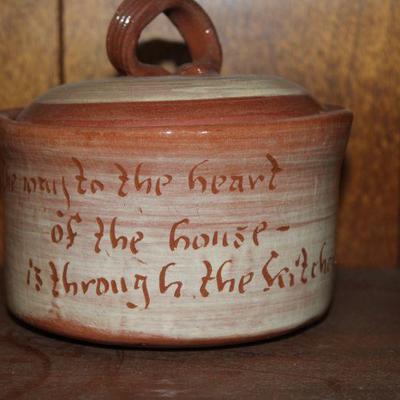 the way to the heart
of the house -
is through the kitchen